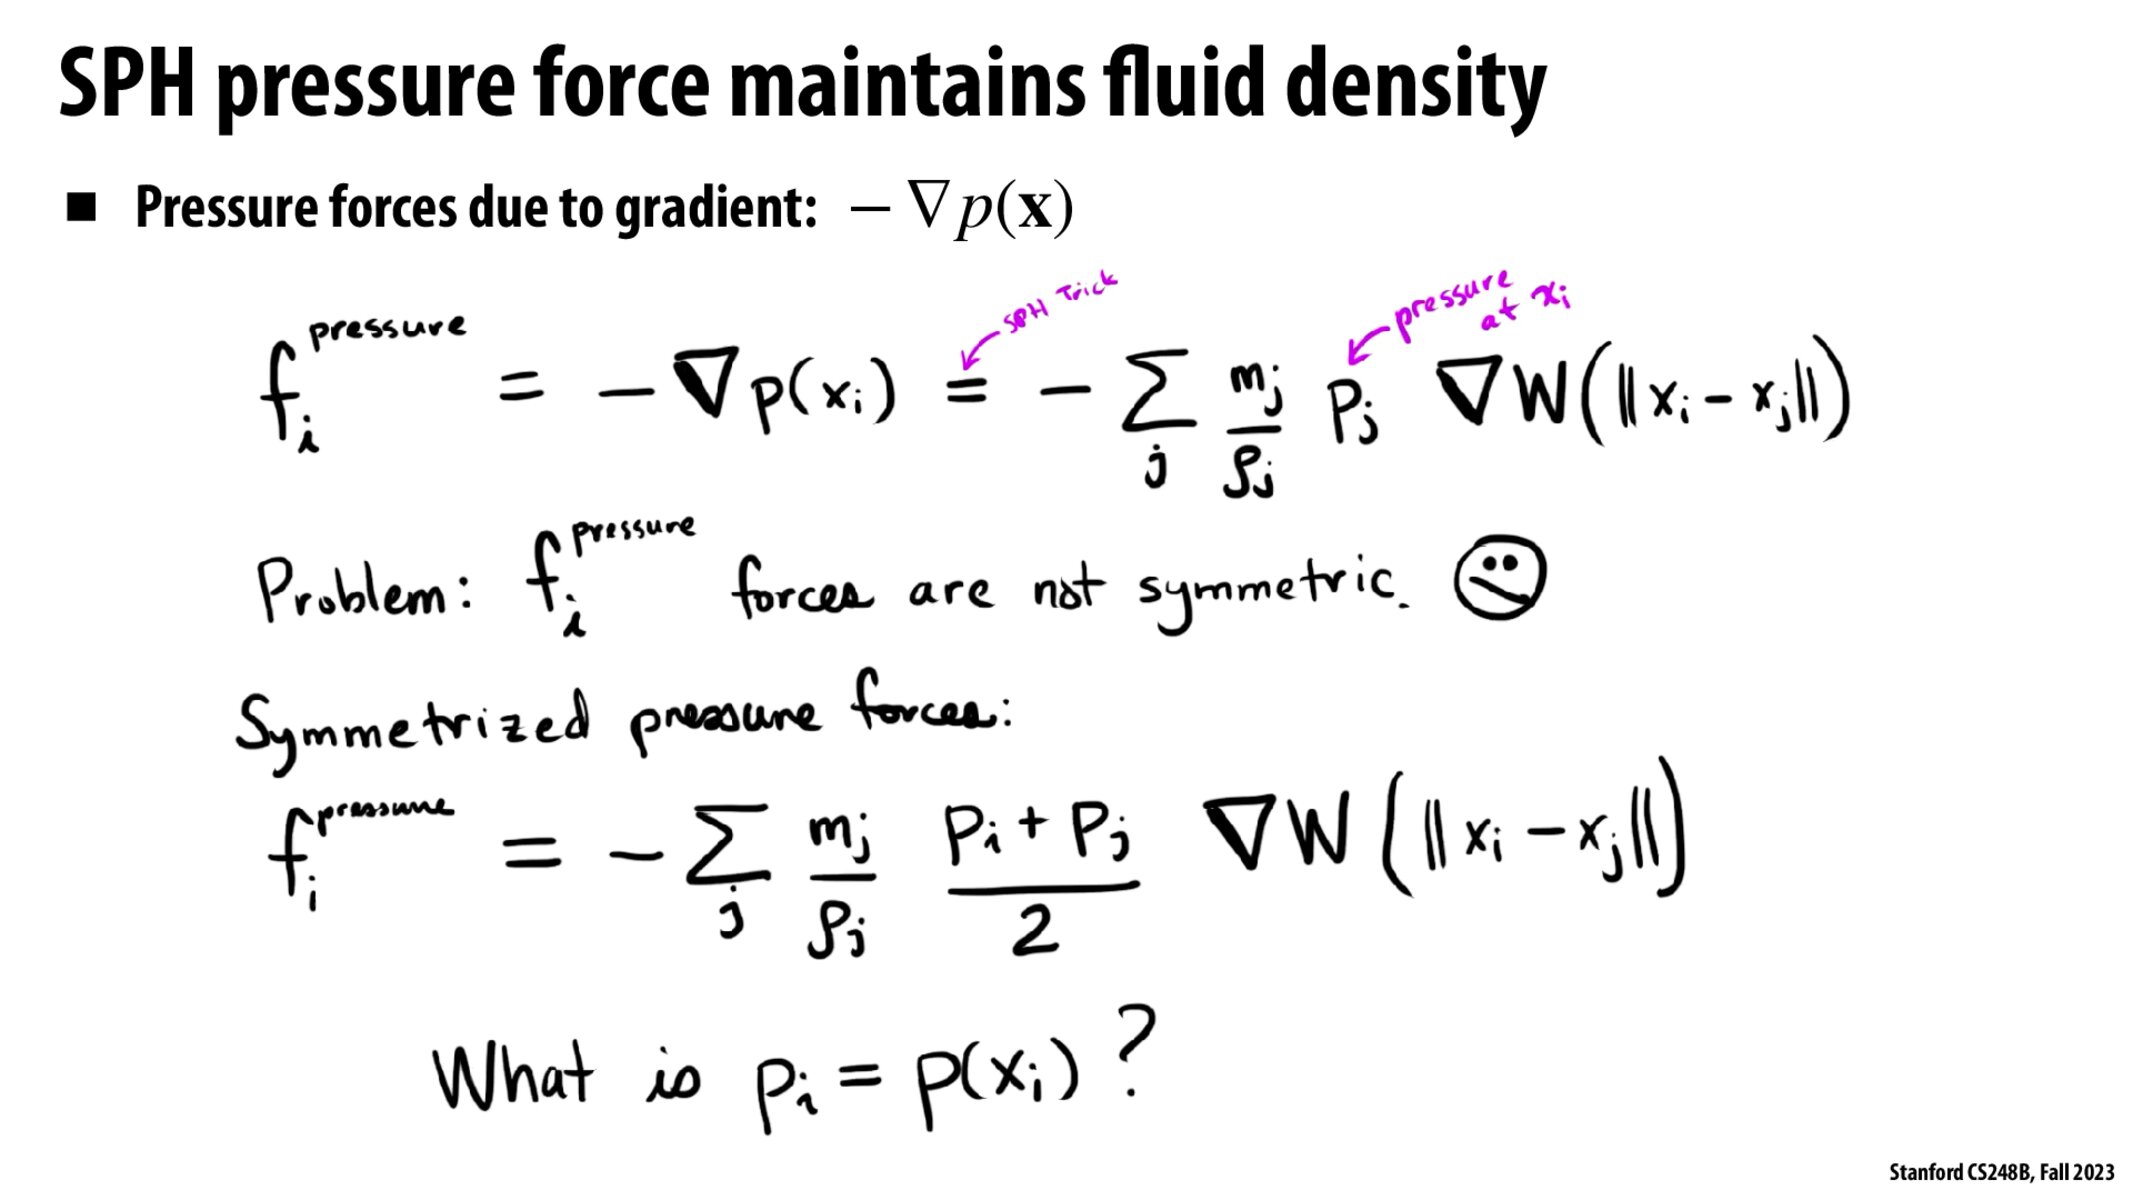 SPH pressure force maintains fluid density
■ Pressure forces due to gradient: − ∇p(x)
SPH Trick
pressure at xi
f_i^pressure = − ∇p(x_i) = − Σ_j m_j/ρ_j p_j ∇W(‖x_i − x_j‖)
Problem: f_i^pressure forces are not symmetric.
Symmetrized pressure forces:
f_i^pressure = − Σ_j m_j/ρ_j (p_i + p_j)/2 ∇W(‖x_i − x_j‖)
What is p_i = p(x_i) ?
Stanford CS248B, Fall 2023